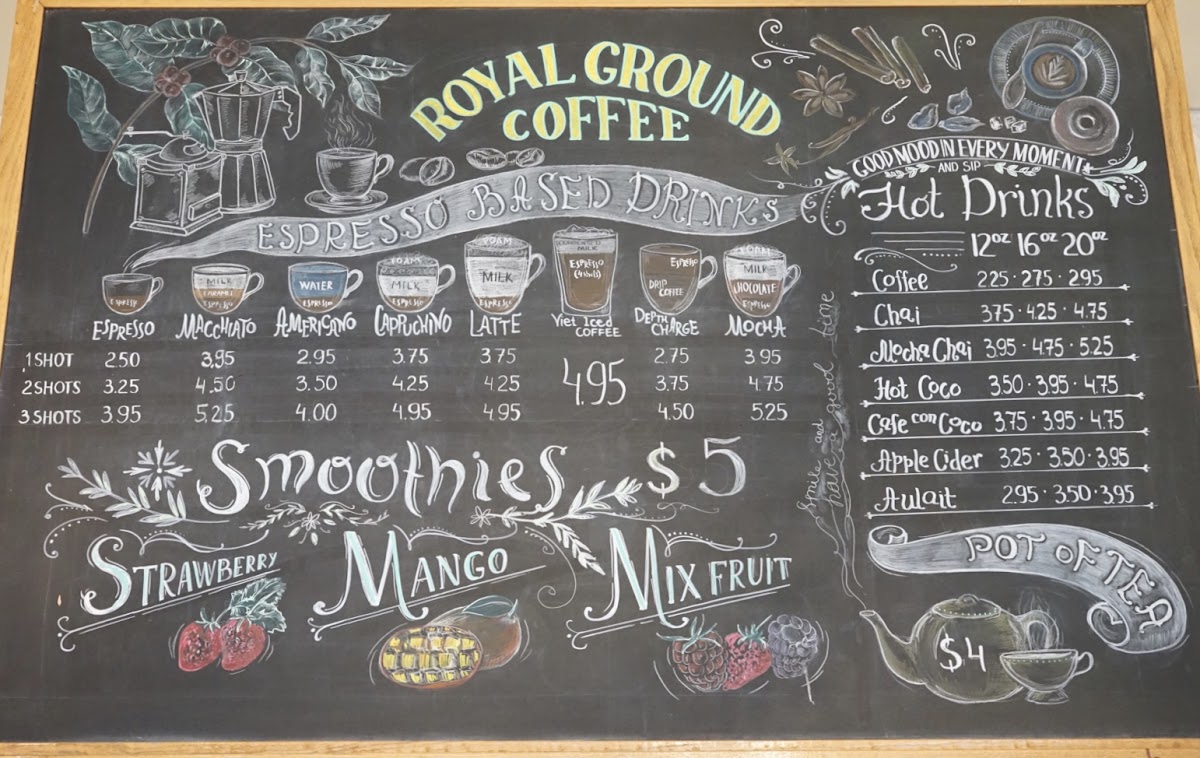 ROYAL GROUND
COFFEE
ESPRESSO BASED DRINKS
ESPRESSO
MILK
CARAMEL
ESPRESSO
WATER
ESPRESSO
FOAM
MILK
ESPRESSO
FOAM
MILK
ESPRESSO
CONDENSED
MILK
ESPRESSO
ESPRESSO
DRIP
COFFEE
FOAM
MILK
CHOCOLATE
ESPRESSO
ESPRESSO MACCHIATO AMERICANO CAPPUCHINO LATTE Viet Iced COFFEE DEPTH CHARGE MOCHA
1 SHOT 2.50 3.95 2.95 3.75 3.75 4.95 2.75 3.95
2 SHOTS 3.25 4.50 3.50 4.25 4.25 3.75 4.75
3 SHOTS 3.95 5.25 4.00 4.95 4.95 4.50 5.25
Smoothies $5
STRAWBERRY MANGO MIX FRUIT
Smile and
have a good time
GOOD MOOD IN EVERY MOMENT
AND SIP
Hot Drinks
12oz 16oz 20oz
Coffee 2.25 · 2.75 · 2.95
Chai 3.75 · 4.25 · 4.75
Mocha Chai 3.95 · 4.75 · 5.25
Hot Coco 3.50 · 3.95 · 4.75
Cafe con Coco 3.75 · 3.95 · 4.75
Apple Cider 3.25 · 3.50 · 3.95
Aulait 2.95 · 3.50 · 3.95
POT OF TEA
$4